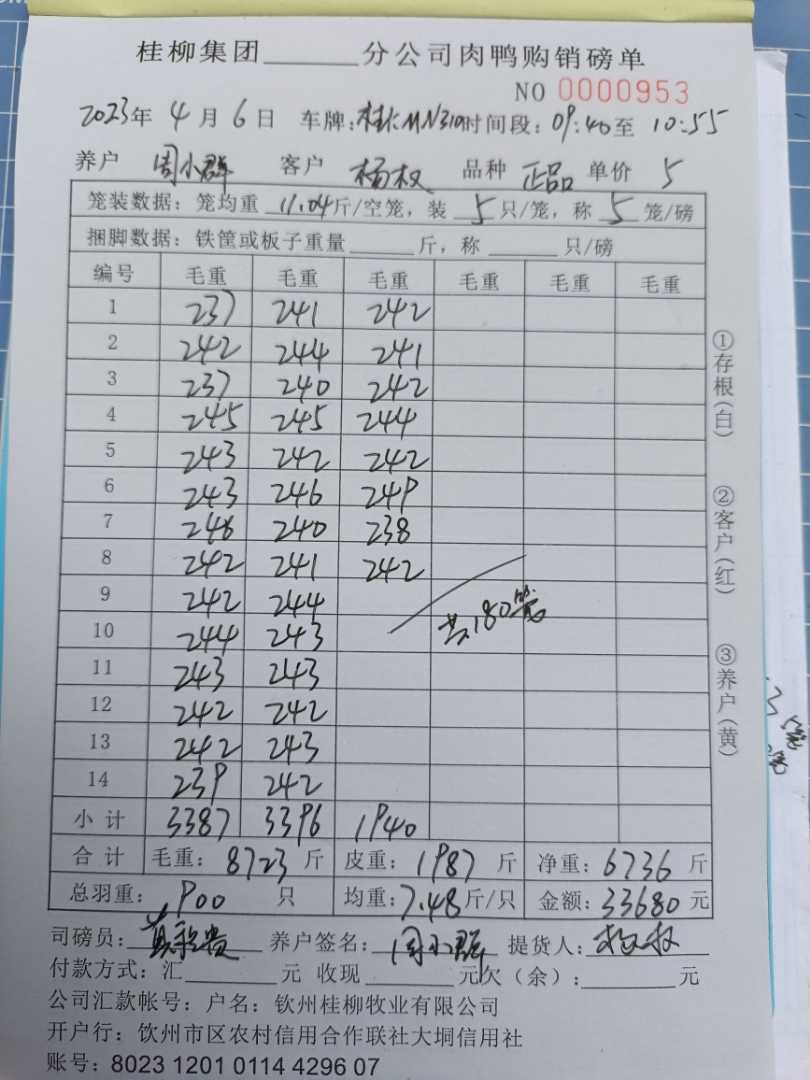 桂柳集团______分公司肉鸭购销磅单
NO 0000953
2023年 4月 6日 车牌:桂KMN310时间段:09:40至 10:55
养户 周小群 客户 杨权 品种 正品 单价 5
笼装数据:笼均重 11.04斤/空笼,装 5 只/笼,称 5 笼/磅
捆脚数据:铁筐或板子重量______斤,称______只/磅
编号 毛重 毛重 毛重 毛重 毛重 毛重
1 237 241 242
2 242 244 241
3 237 240 242
4 245 245 244
5 243 242 242
6 243 246 249
7 246 240 238
8 242 241 242
9 242 244
共180笼
10 244 243
11 243 243
12 242 242
13 242 243
14 239 242
小计 3387 3396 1940
合计 毛重:8723斤 皮重:1987斤 净重:6736斤
总羽重:900只 均重:7.48斤/只 金额:33680元
司磅员: 养户签名:周小群 提货人:杨权
付款方式:汇______元 收现______元欠(余):______元
公司汇款帐号:户名:钦州桂柳牧业有限公司
开户行:钦州市区农村信用合作联社大垌信用社
账号:8023 1201 0114 4296 07
①存根(白)
②客户(红)
③养户(黄)